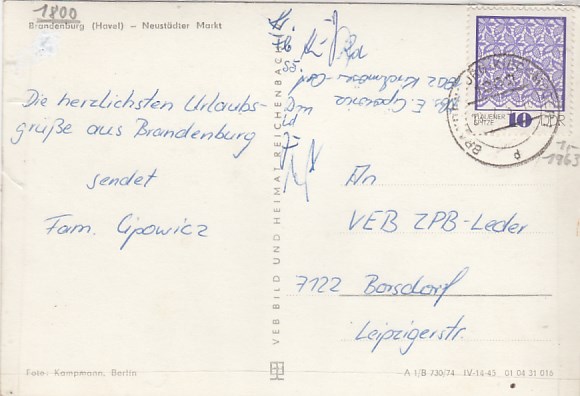 1800
Brandenburg (Havel) – Neustädter Markt
Die herzlichsten Urlaubs-
grüße aus Brandenburg
sendet
Fam. Cipowicz
Foto: Kampmann, Berlin
VEB BILD UND HEIMAT REICHENBACH
PLAUENER
SPITZE
10
DDR
1963
An
VEB ZPB-Leder
7122 Borsdorf
Leipzigerstr.
A 1/B 730/74 IV-14-45 01 04 31 016